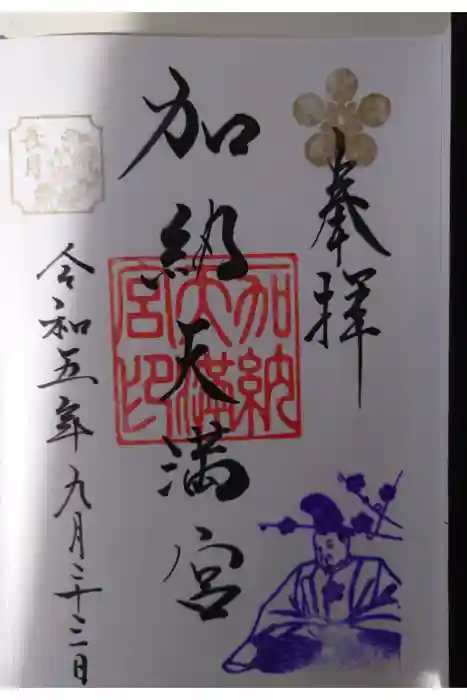 奉拝
加納天満宮
加納
天満
宮印
令和五年九月二十三日